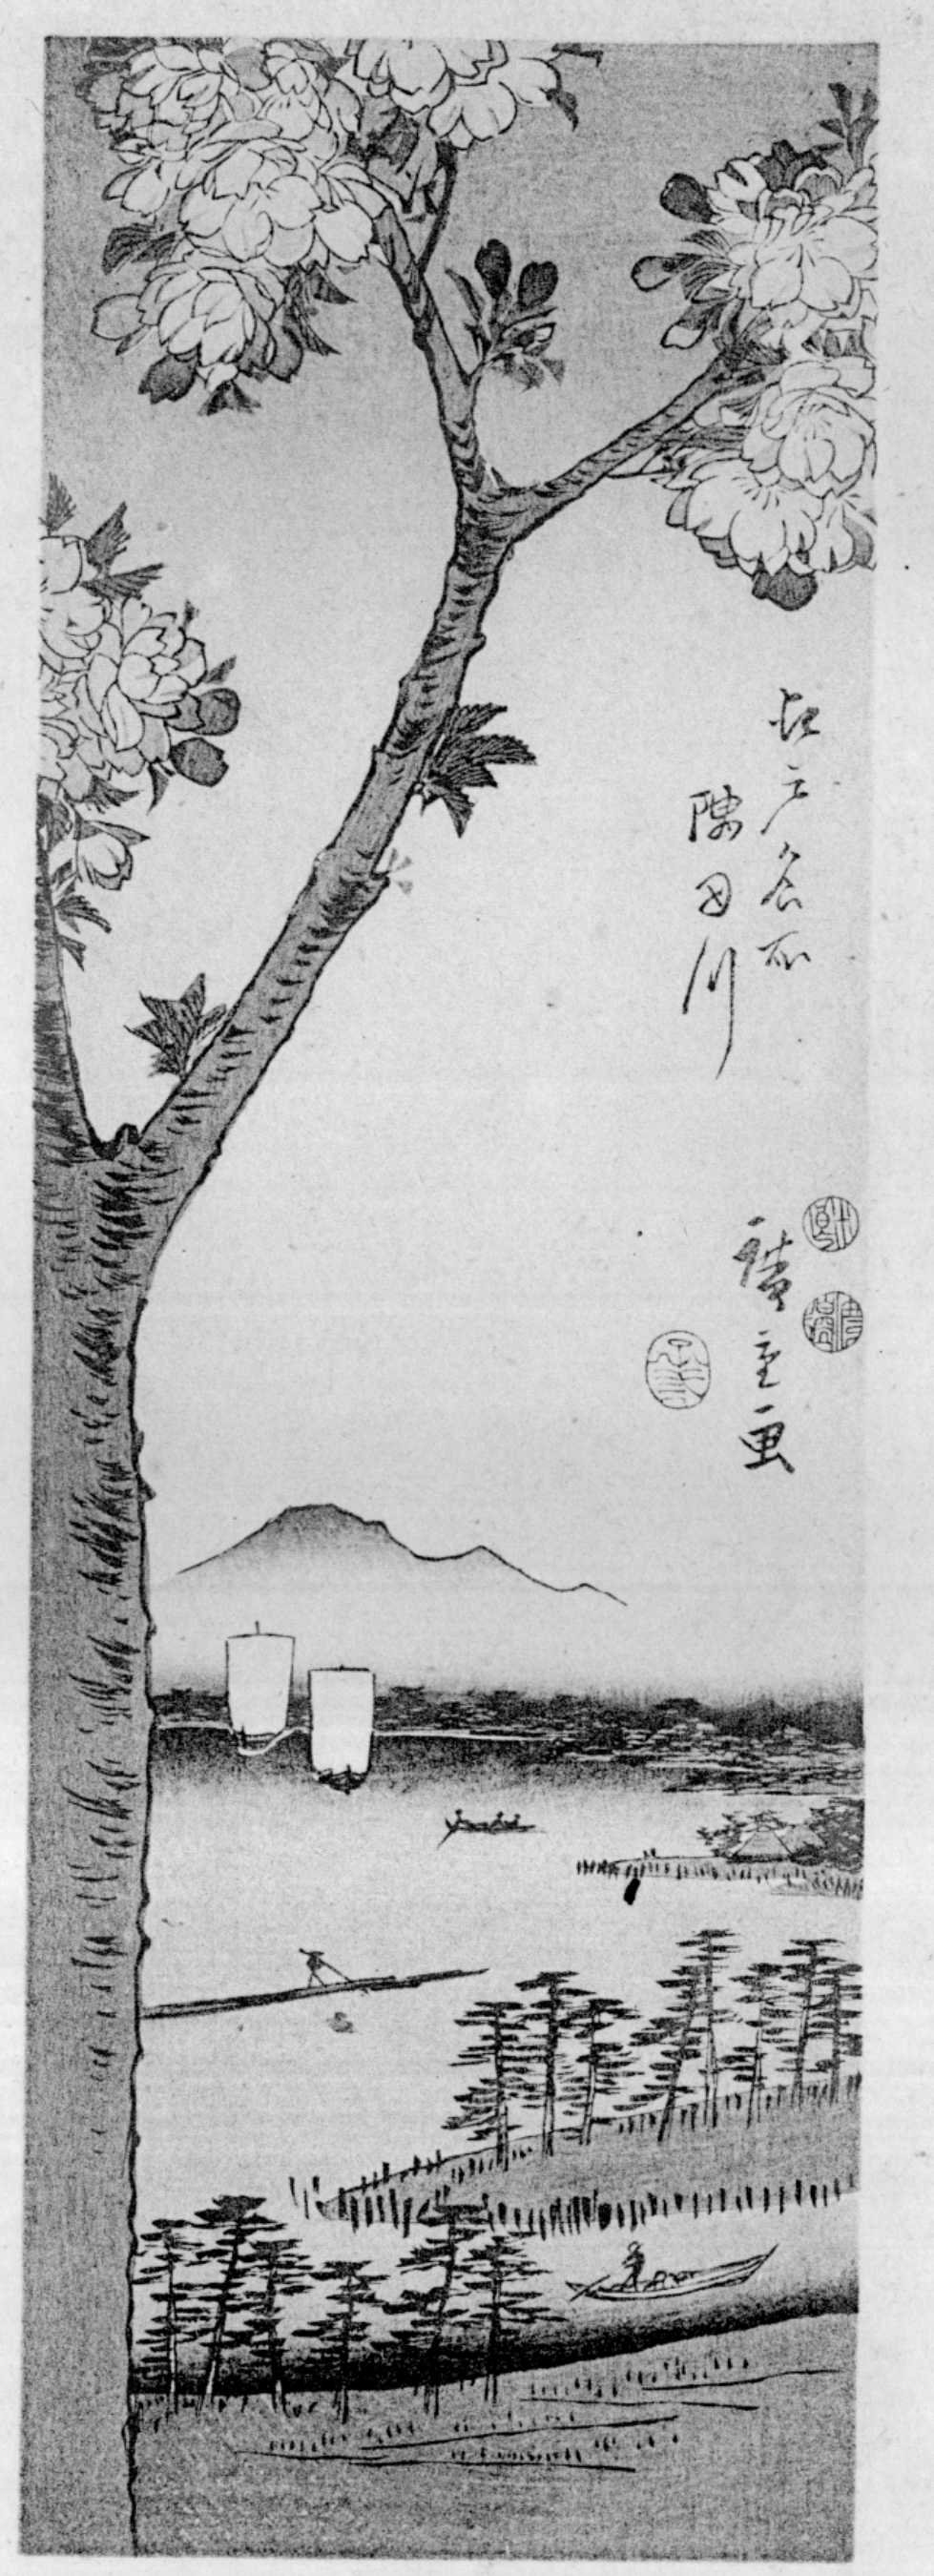 江戸名所
隅田川
廣重画